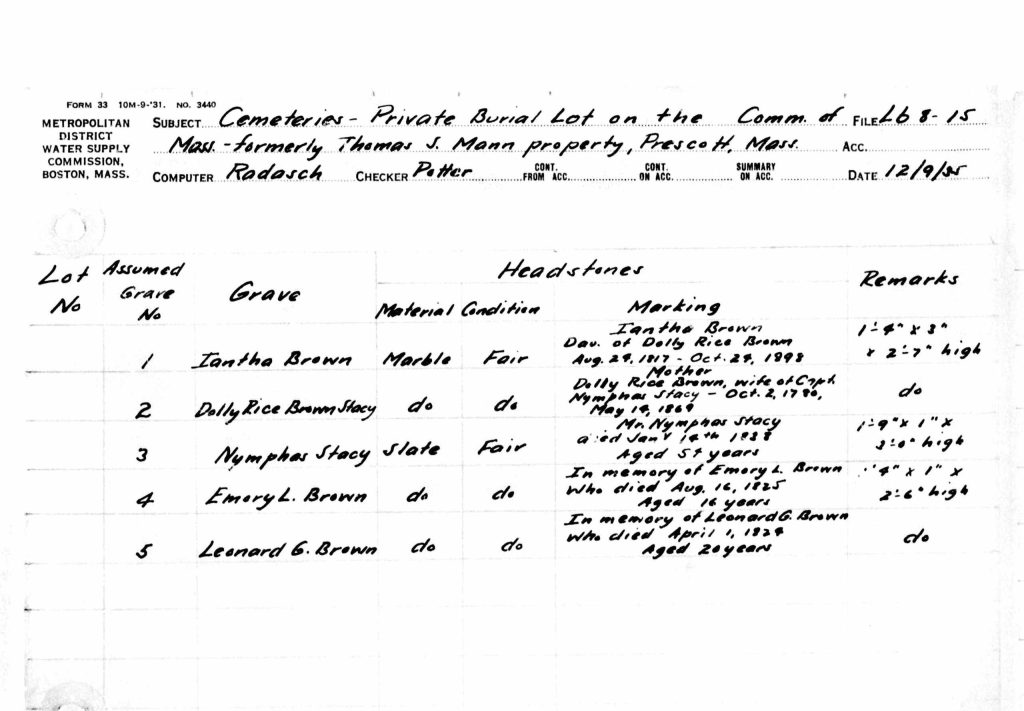 FORM 33 10M-9-'31. NO. 3440
METROPOLITAN
DISTRICT
WATER SUPPLY
COMMISSION,
BOSTON, MASS.
SUBJECT Cemeteries - Private Burial Lot on the Comm. of FILE Lb 8-15
Mass. - formerly Thomas S. Mann property, Prescott, Mass. ACC.
COMPUTER Radasch CHECKER Potter CONT. FROM ACC. CONT. ON ACC. SUMMARY ON ACC. DATE 12/9/35
Lot No Assumed Grave No Grave Headstones Remarks
Material Condition Marking
Iantha Brown 1'-4" x 3"
Dau. of Dolly Rice Brown
1 Iantha Brown Marble Fair Aug. 29, 1817 - Oct. 29, 1898 x 2'-7" high
Mother
Dolly Rice Brown, wife of Capt.
2 Dolly Rice Brown Stacy do do Nymphas Stacy - Oct. 2, 1780, do
May 19, 1869
Mr. Nymphas Stacy 1'-9" x 1" x
3 Nymphas Stacy Slate Fair died Jan'y 14th 1838 3'-0" high
Aged 57 years
In memory of Emory L. Brown 4" x 1" x
4 Emory L. Brown do do Who died Aug. 16, 1825 2'-6" high
Aged 16 years
In memory of Leonard G. Brown
5 Leonard G. Brown do do Who died April 1, 1829 do
Aged 20 years